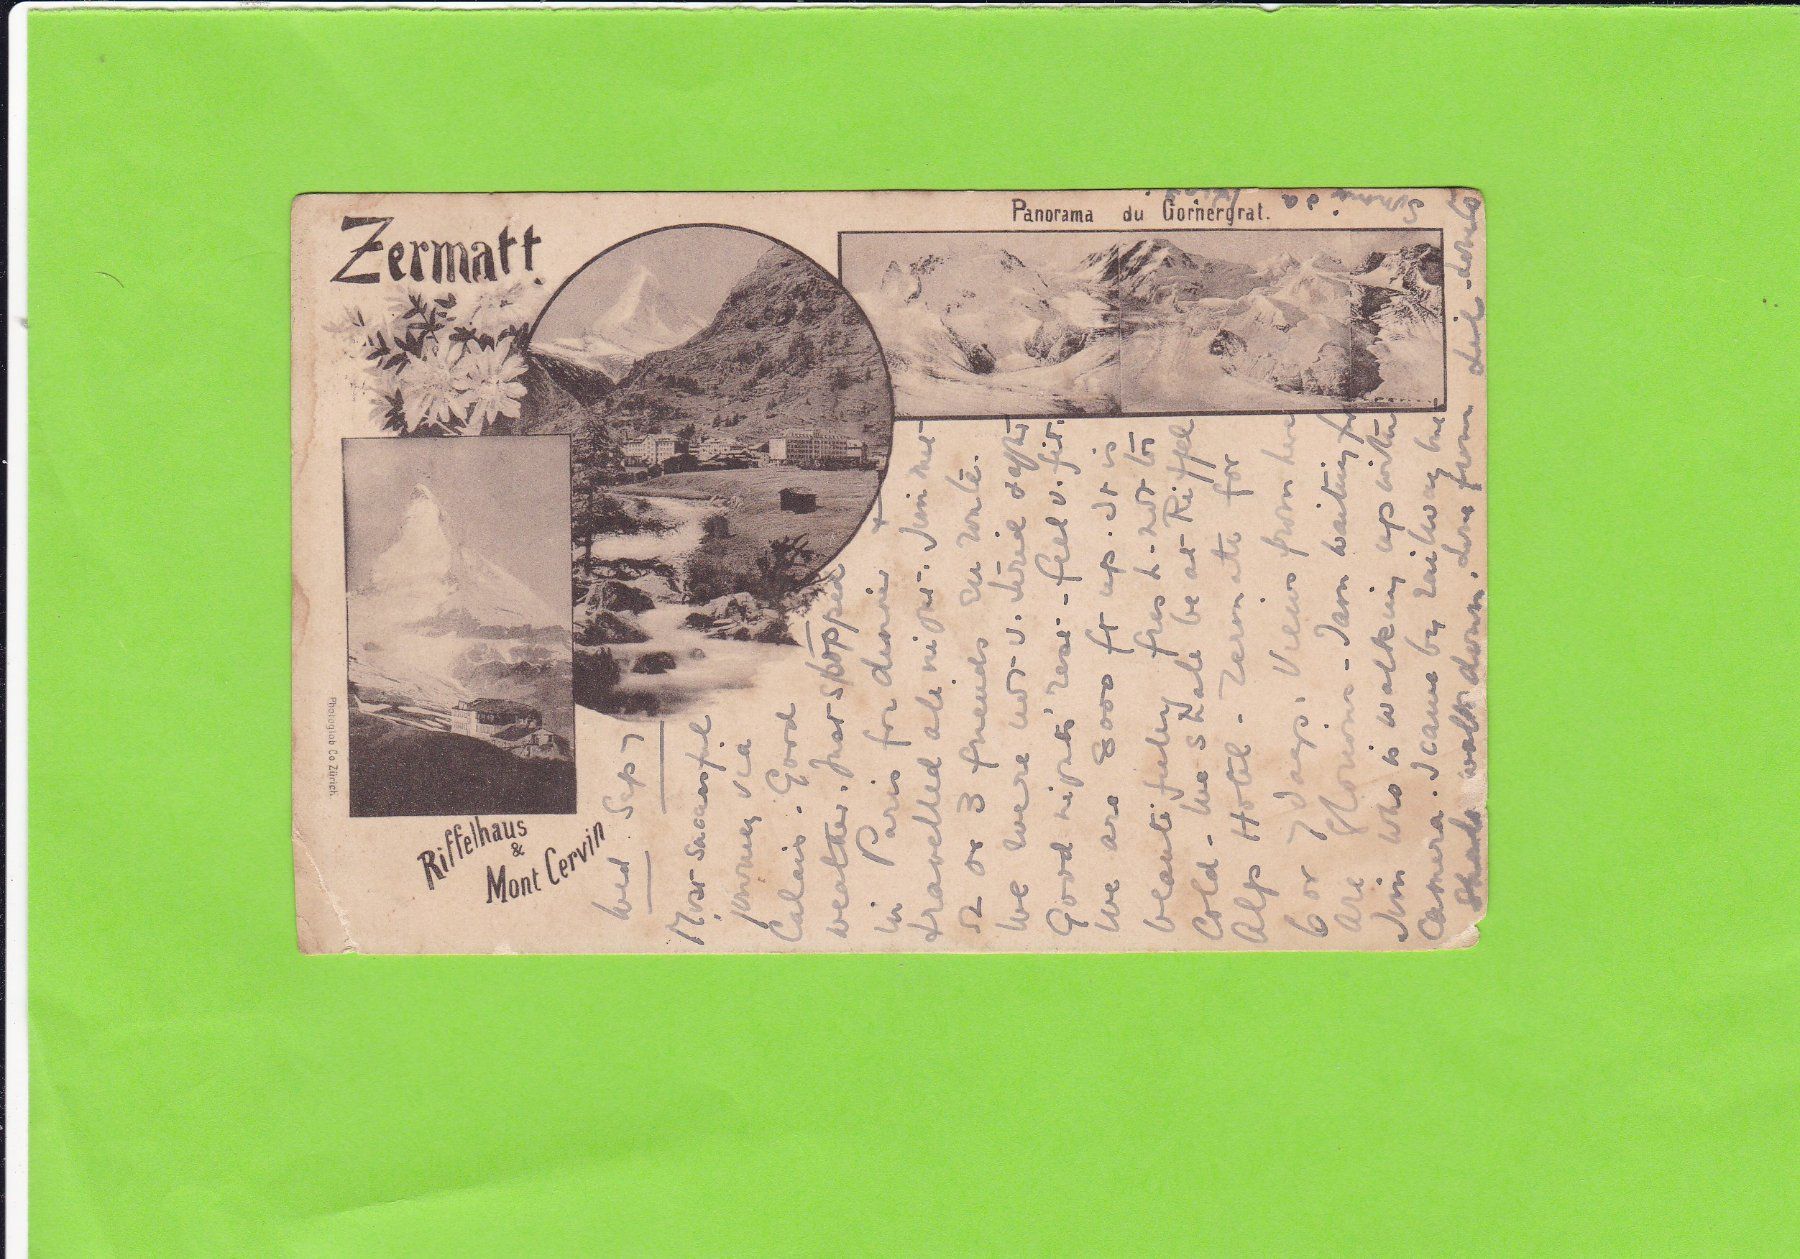 Zermatt.
Panorama du Gornergrat.
Riffelhaus
&
Mont Cervin
Photoglob Co Zürich.
Wed Sep 7
Most successful
journey via
Calais. Good
weather. Just stopped
in Paris for dinner +
travelled all night. Jim met
2 or 3 friends en route.
We were not v. tired after
Good nights' rest - feel v. fit.
We are 8000 ft up. It is
beautifully fresh - not too
Cold - We shall be at Riffel
Alp Hotel - Zermatt for
6 or 7 days. Views from here
are glorious - I am waiting for
Jim who is walking up with
Camera. I came by railway but
shall walk down. Love from